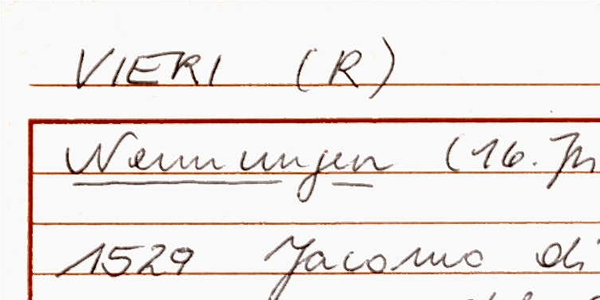 VIERI (R)
Nennungen (16. Jh
1529 Jacomo di